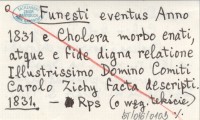 Funesti eventus Anno
1831 e Cholera morbo enati,
atque e fide digna relatione
Illustrissimo Domino Comiti
Carolo Zichy facta descripti.
1831. — Rps (o węg. tekście)